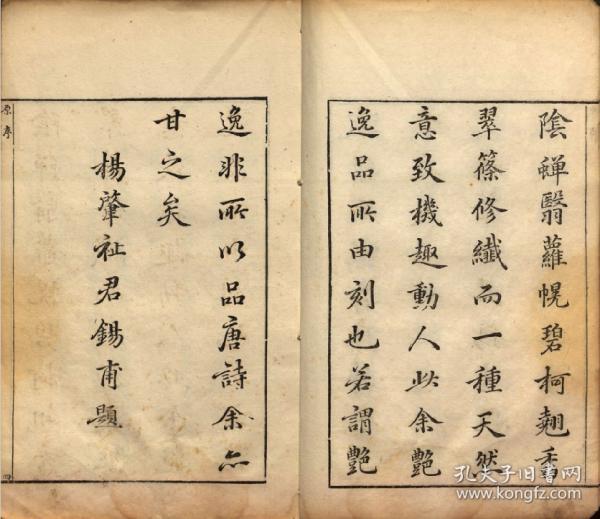 陰蟬翳蘿幌碧柯翹秀
翠篠修纖而一種天然
意致機趣動人此余艷
逸品所由刻也若謂艷
逸非所以品唐詩余亦
甘之矣
楊肇祉君錫甫題
原序
四
孔夫子旧书网
www.kongfz.com